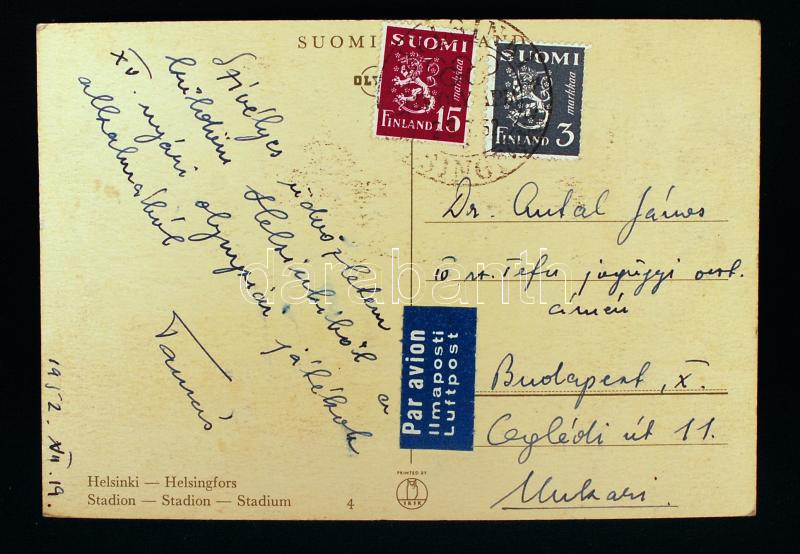 SUOMI
OLY
SUOMI
markkaa
FINLAND 15
SUOMI
markkaa
FINLAND 3
Szívélyes üdvözletem
küldöm Helsinkiből a
XV. nyári olympiai játékok
alkalmából
Tamás
1952. VII. 19.
Dr. Antal János
jogügyi oszt.
címén
Budapest, X.
Ceglédi út 11.
Par avion
Ilmaposti
Luftpost
darabanth
Helsinki — Helsingfors
Stadion — Stadion — Stadium
4
PRINTED BY